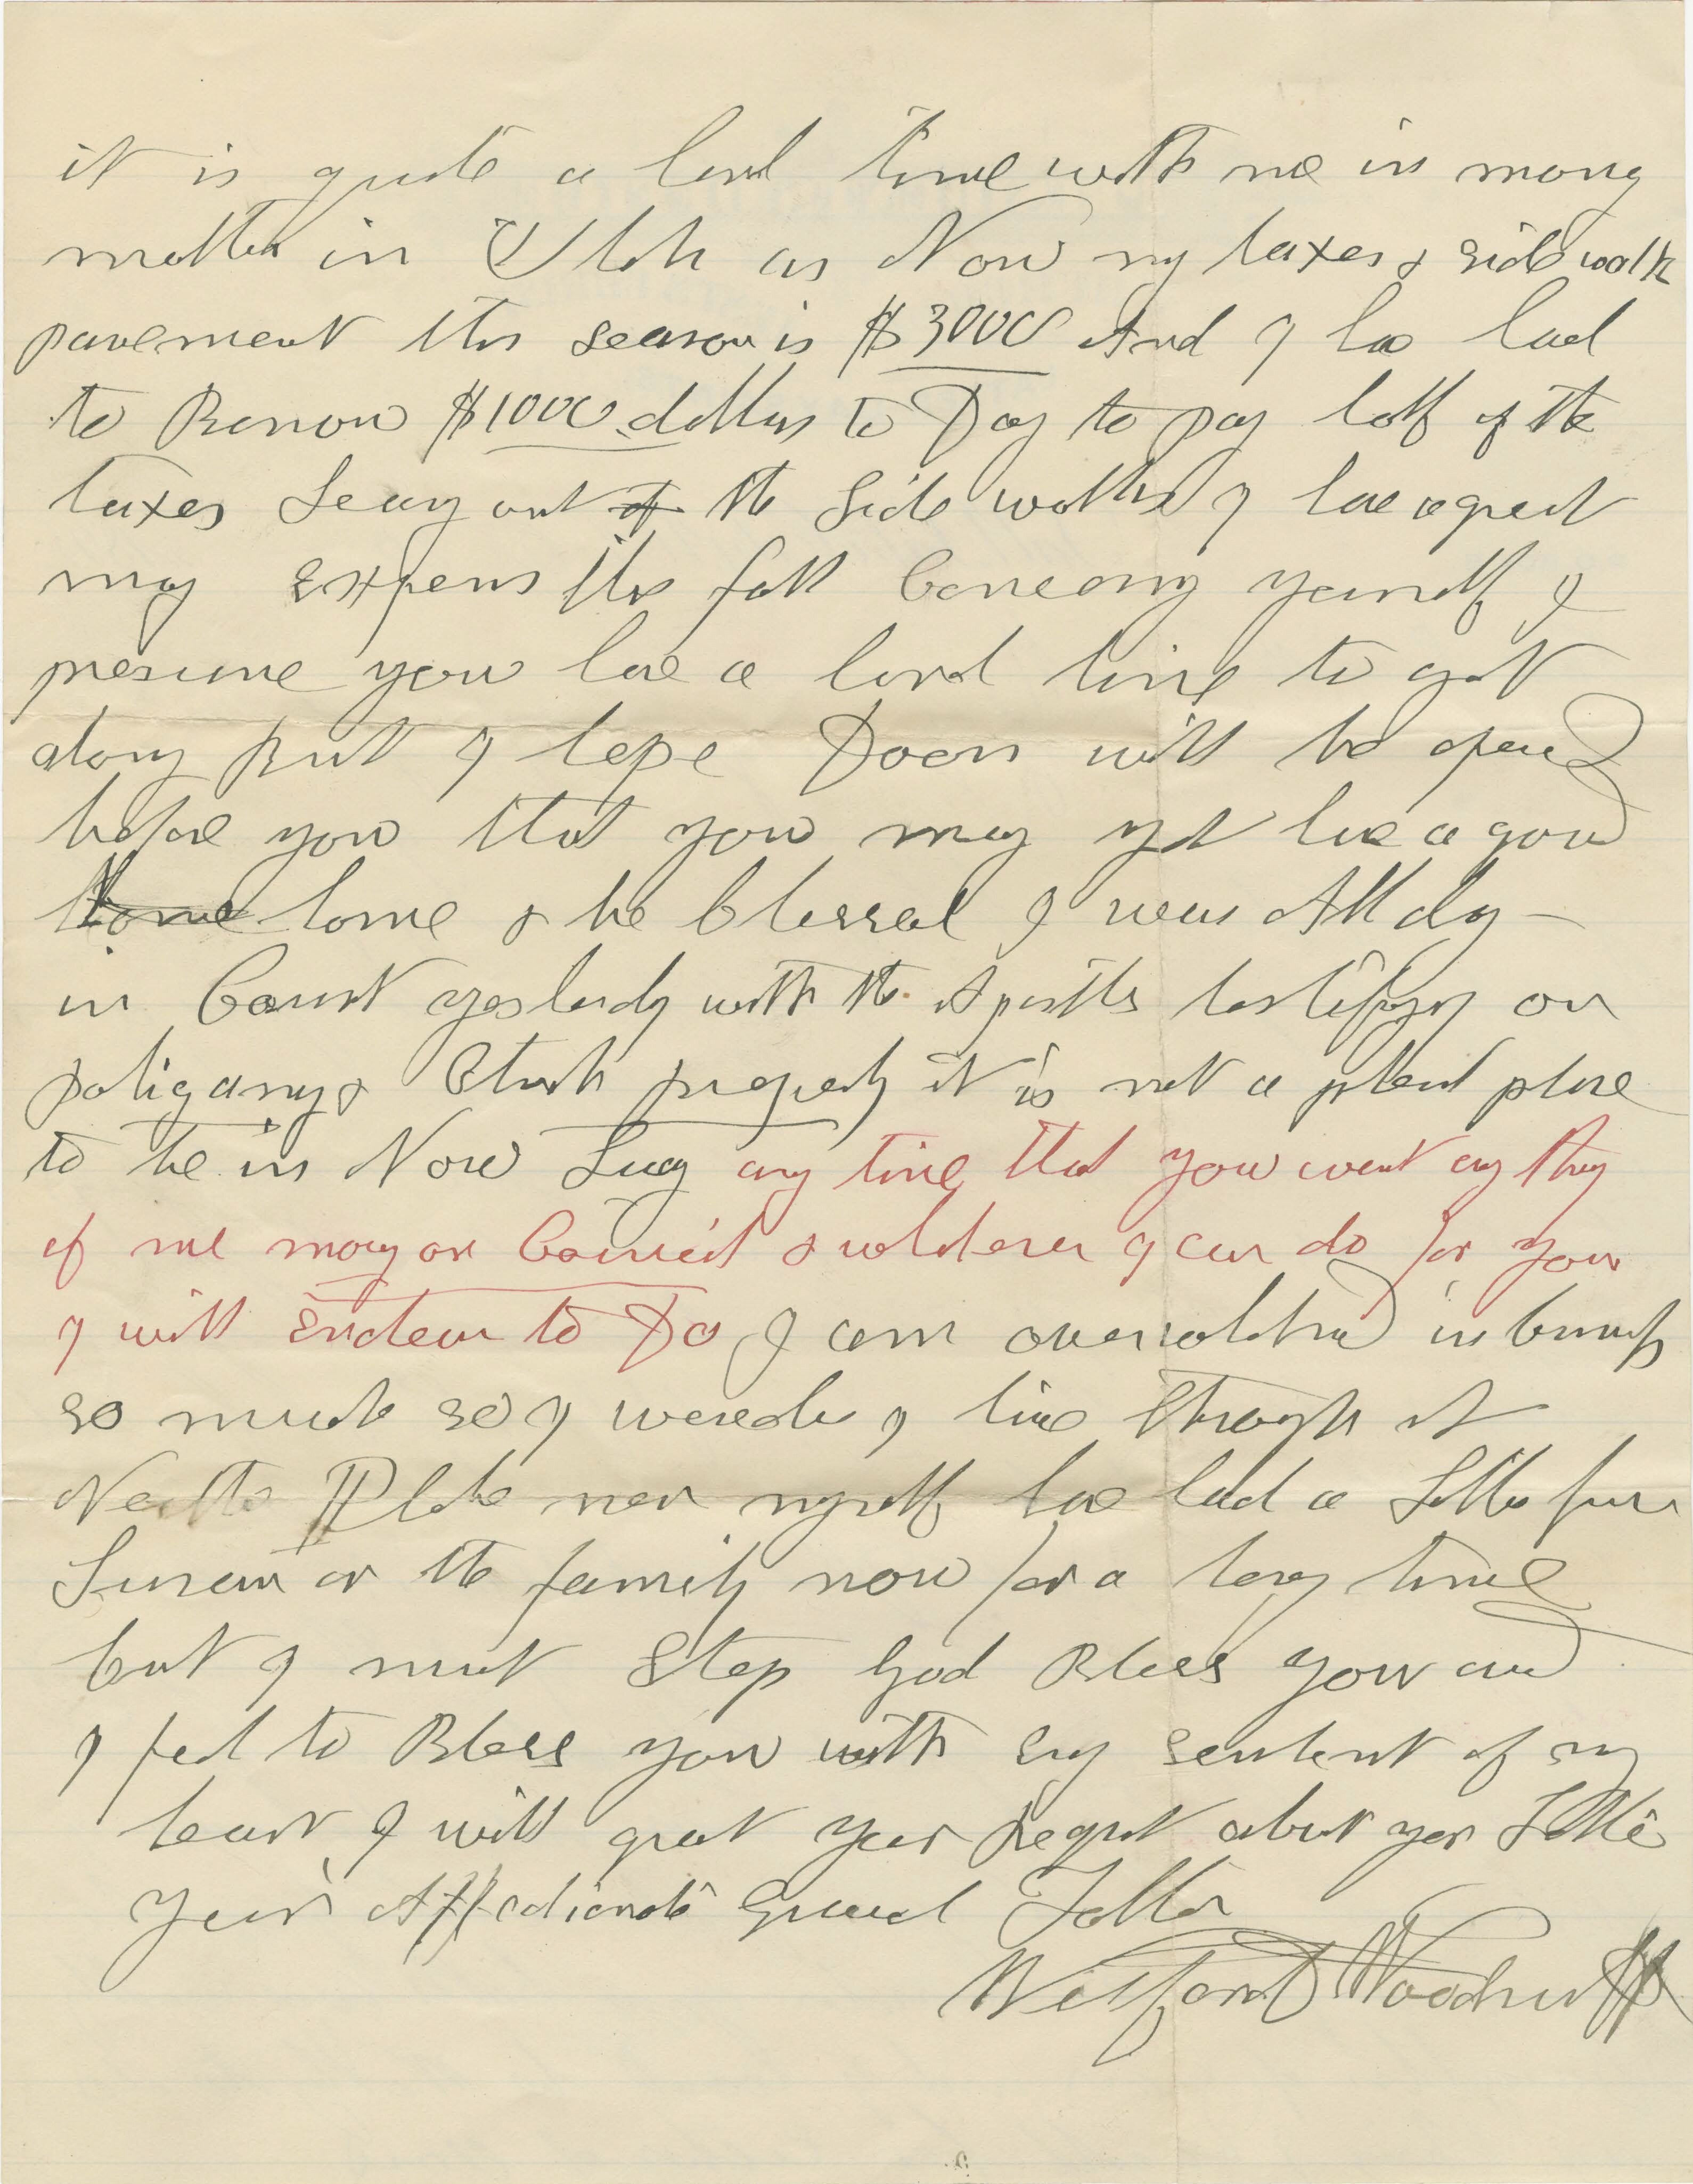 it is quite a hard time with me in mony
matters in Utah as Now my taxes & side walk
pavement this season is $3000 And I hae had
to Borrow $1000 dollars to Day to pay half of the
taxes Leavy out of the side walks I hae a great
my expens this fall Concerng yourself I
presume you hae a hard time to get
along But I hope Doors will be opened
before you that you may yet have a good
Home home & be blessed I was All day
in Court yesterdy with the Apostles testifyng on
poligamy & Church property it is not a pleast place
to be in Now Lucy any time that you want any thing
of me mony or Council & whatever I can do for you
I will Endeavor to Do I am overwhelmed in business
so much so I wonder I live through it
Phebe nor myself have had a Letter from
Susan or the family now for a long time
but I must Stop God Bless you and
I feel to Bless you with evry sentiment of my
heart I will grant your Request about your Letter
Your Affectionate Grand Father
Wilford Woodruff